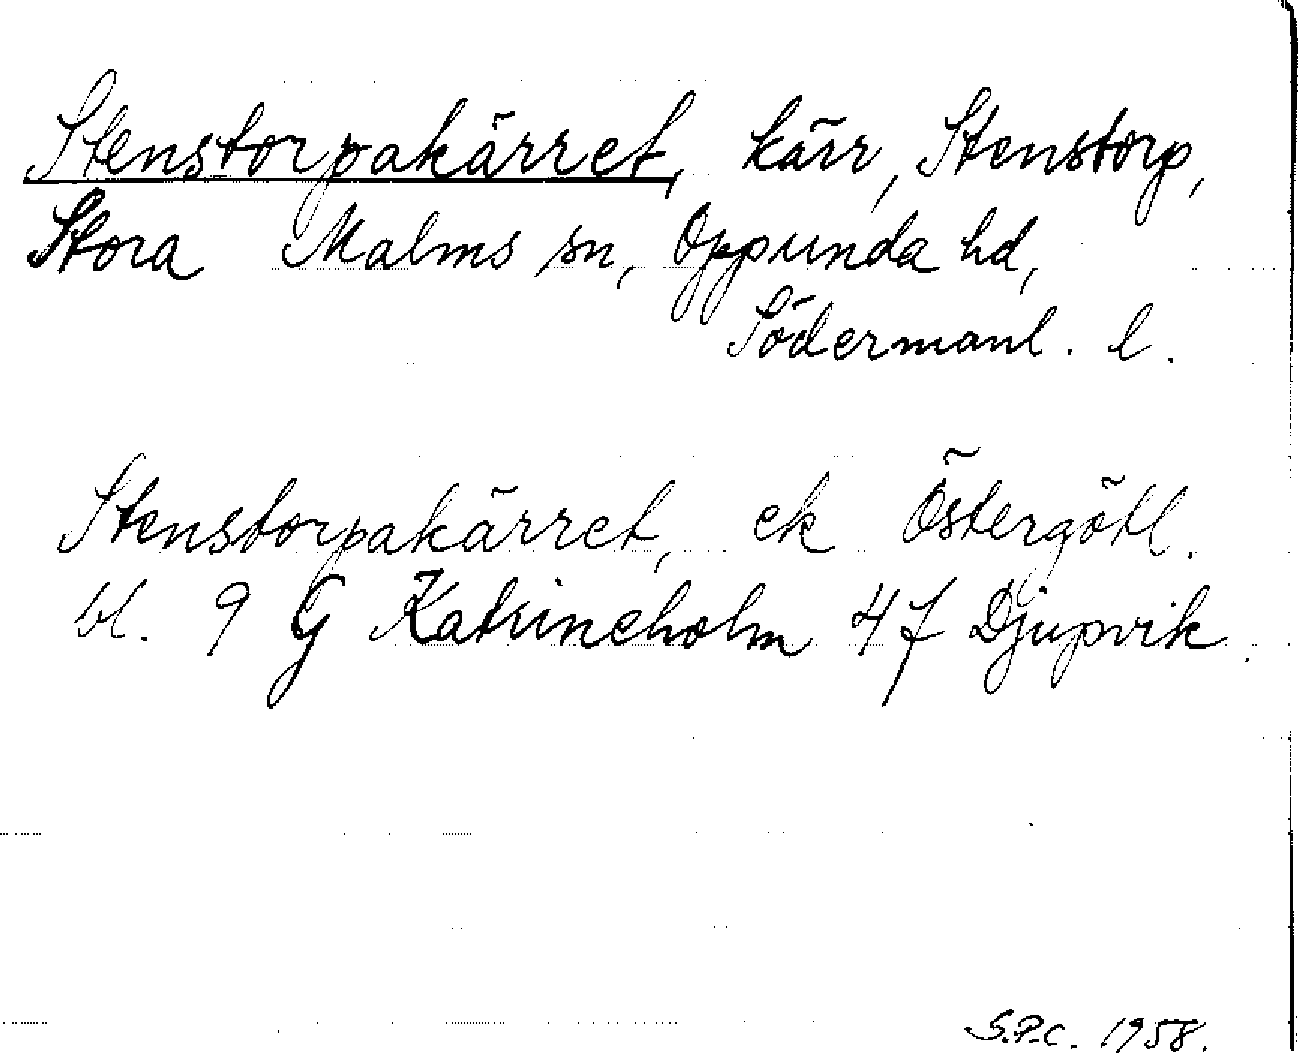 Stenstorpakärret, kärr, Stenstorp,
Stora Malms sn, Oppunda hd,
Södermanl. l.
Stenstorpakärret, ek Östergötl.
bl. 9 G Katrineholm 4f Djupvik.
S.P.C. 1958.